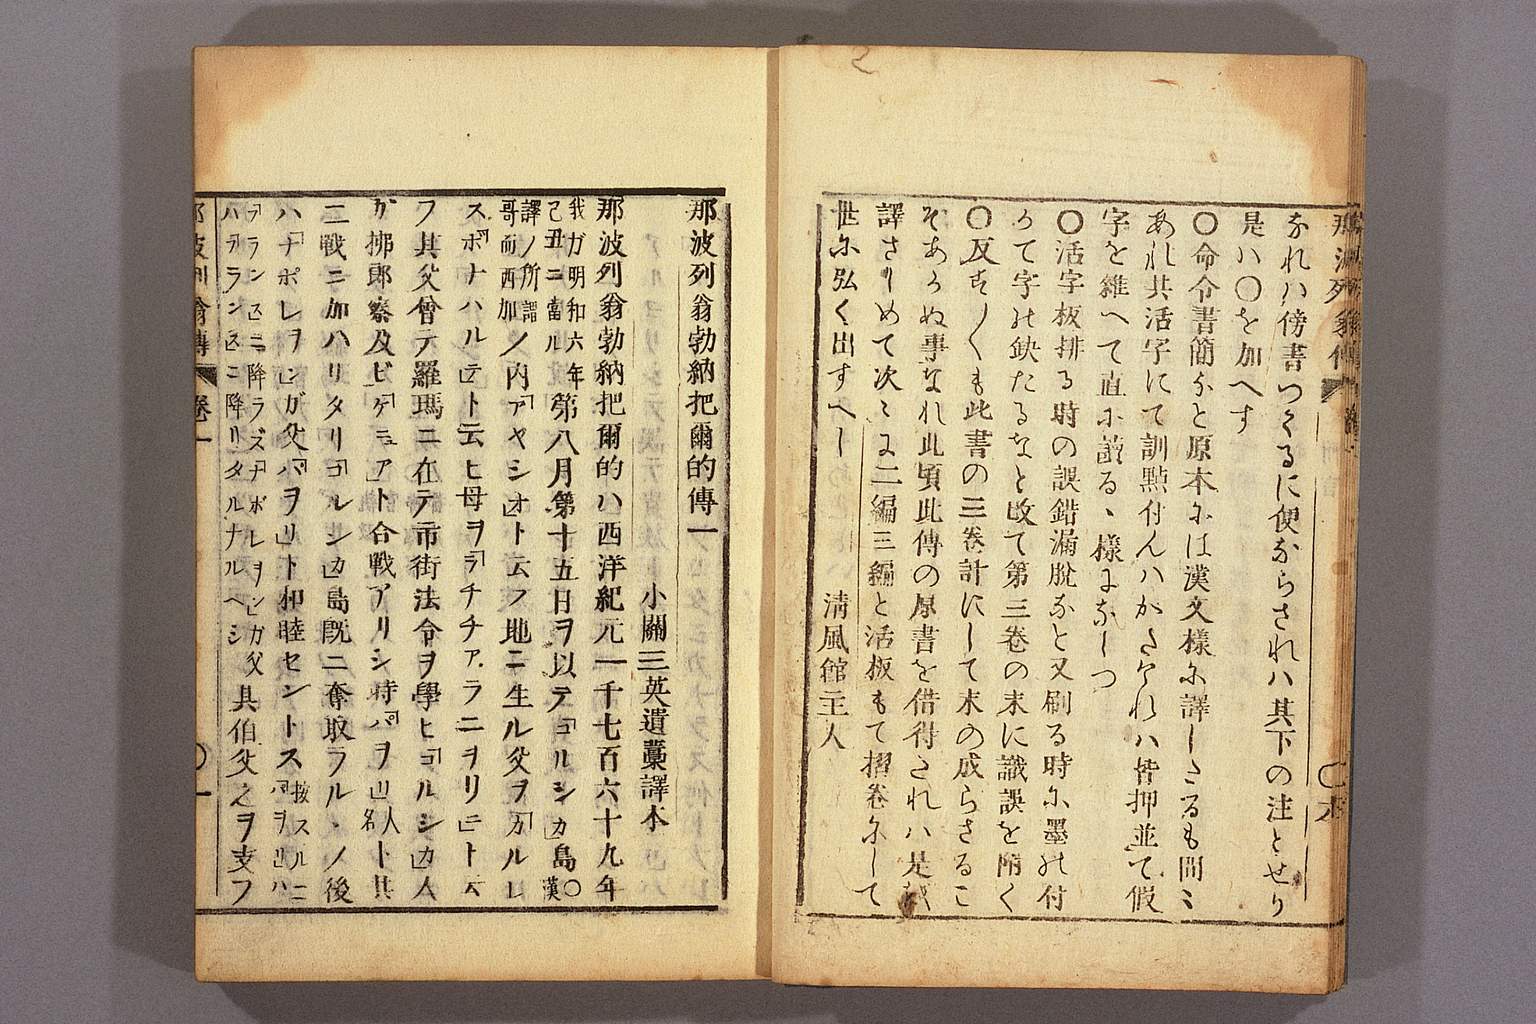 那波列翁傳
なれハ傍書つくるに便ならされハ其下の注とせり
是ハ〇を加へす
〇命令書簡なと原本には漢文樣に譯したるも間〻
あれ共活字にて訓點付んハかたけれハ皆押並て假
字を雜へて直に讀る、樣になしつ
〇活字板排る時の誤錯漏脫なと又刷る時に墨の付
かて字の缺たるなと改て第三卷の末に識誤を附く
〇反すくも此書の三卷計にして末の成らさるこ
そあかぬ事なれ此頃此傳の原書を借得されハ是
譯さしめて次〻に二編三編と活板もて摺卷にして
世に弘く出すへし
淸風館主人
那波列翁勃納把爾的傳一
小關三英遺藁譯本
那波列翁勃納把爾的ハ西洋紀元一千七百六十九年
我ガ明和六年
己丑ニ當ル
第八月第十五日ヲ以テ「コルシカ」島〇漢
譯ノ所謂
哥而西加
ノ内「アヤシオ」ト云フ地ニ生ル父ヲ「カルレ
ス」「ボナハルテ」ト云ヒ母ヲ「ラチチア、ラニヲリニ」ト云
フ其父曾テ羅瑪ニ在テ市街法令ヲ學ヒ「コルシカ」人
ガ拂郎察及ビ「ゲニュア」ト合戰アリシ時「パヲリ」人
名
ト共
ニ戰ニ加ハリタリ「コルシカ」島既ニ奪取ラル、ノ後
ハ「ナポレヲン」ガ父「パヲリ」ト和睦セントス
按スルニ
「パヲリ」ハ
「フランス」ニ降ラズ「ナポレヲン」ガ父
ハ「フランス」ニ降リタルナルヘシ
其伯父之ヲ支フ
那波列翁傳 卷一 〇一